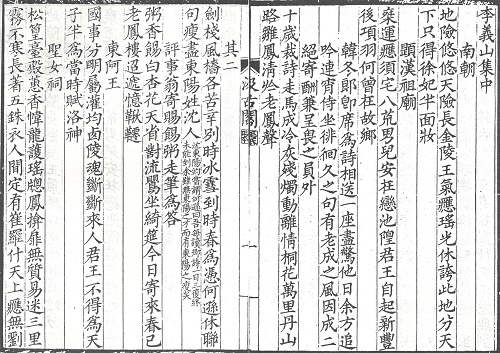 李義山集中
南朝
地險悠悠天險長金陵王氣應瑤光休誇此地分天
下只得徐妃半面妝
題漢祖廟
乘運應須宅八荒男兒安在戀池隍君王自起新豐
後項羽何曾在故鄉
韓冬郎卽席為詩相送一座盡驚他日余方追
吟連宵侍坐徘徊久之句有老成之風因成二
絕寄酬兼呈畏之員外
十歲裁詩走馬成冷灰殘燭動離情桐花萬里丹山
路雛鳳清於老鳳聲
汲古閣
其二
劍棧風檣各苦辛別時冰雪到時春為憑何遜休聯
句瘦盡東陽姓沈人
沈東陽約嘗謂何遜曰吾每讀卿詩一日三復終
未能到余雖無東陽之才而有東陽之瘦矣
評事翁寄賜餳粥走筆為答
粥香餳白杏花天省對流鶯坐綺筵今日寄來春已
老鳳樓迢遞憶鞦韆
東阿王
國事分明屬灌均西陵魂斷夜來人君王不得為天
子半為當時賦洛神
聖女祠
松篁臺殿蕙香幃龍護瑤牕鳳掩扉無質易迷三里
霧不寒長著五銖衣人間定有崔羅什天上應無劉